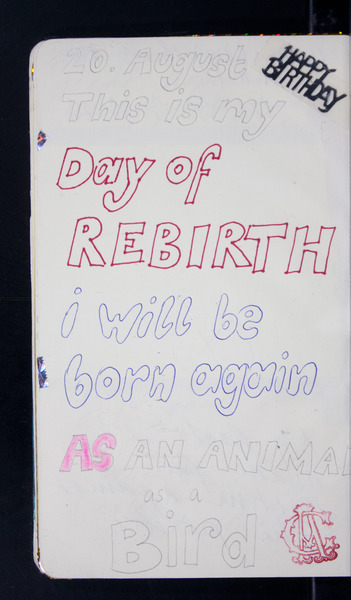 20. August
HAPPY
BIRTHDAY
This is my
Day of
REBIRTH
i will be
born again
AS AN ANIMAL
as a
Bird